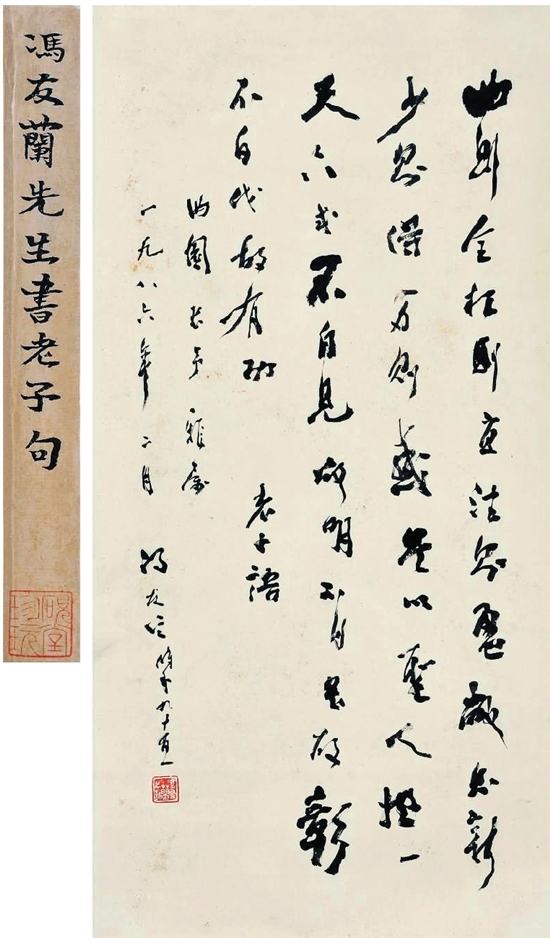 曲則全枉則直洼則盈敝則新
少則得多則惑是以聖人抱一
天下式不自見故明不自是故彰
不自伐故有功 老子語
雅屬
一九八六年二月 馮友蘭 時年九十有一
馮友蘭先生書老子句